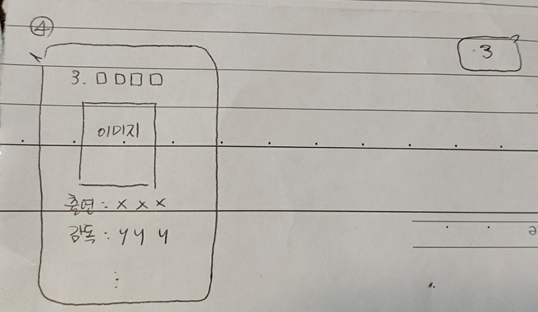 ④
3
3. □□□□
이미지
출연 : x x x
감독 : y y y
⋮